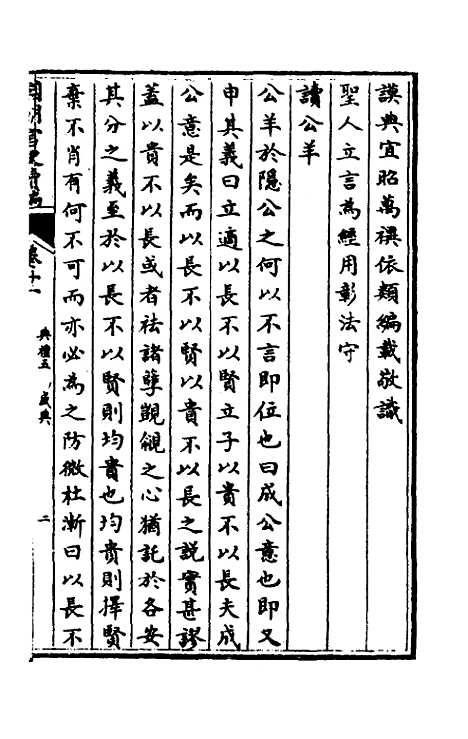 謨典宜昭萬禩依類編載敬識
聖人立言為經用彰法守
讀公羊
公羊於隱公之何以不言即位也曰成公意也即又
申其義曰立適以長不以賢立子以貴不以長夫成
公意是矣而以長不以賢以貴不以長之說實甚謬
蓋以貴不以長或者祛諸孽覬覦之心猶託於各安
其分之義至於以長不以賢則均貴也均貴則擇賢
棄不肖有何不可而亦必為之防微杜漸曰以長不
國朝宮史續編
卷十一
典禮五 盛典
二